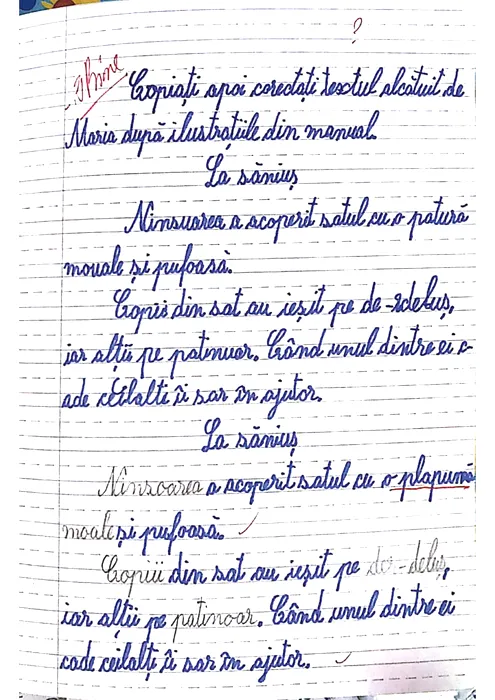 ?
Bine
Copiați apoi corectați textul alcătuit de
Maria după ilustrațiile din manual.
La săniuș
Ninsuarea a acoperit satul cu o patură
mouale și pufoasă.
Copii din sat au ieșit pe de-rdeluș,
iar alții pe patinuar. Când unul dintre ei c-
ade ceilalti îi sar în ajutor.
La săniuș
Ninsoarea a acoperit satul cu o plapumă
moale și pufoasă.
Copiii din sat au ieșit pe der-deluș,
iar alții pe patinoar. Când unul dintre ei
cade ceilalți îi sar în ajutor.